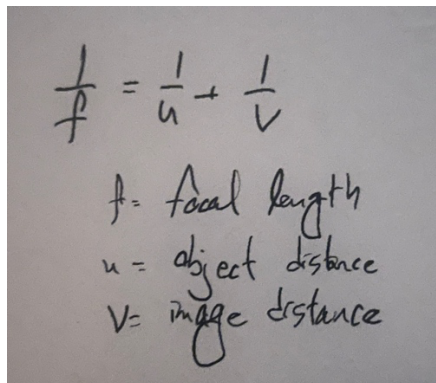 1/f = 1/u + 1/v
f = focal length
u = object distance
V = image distance